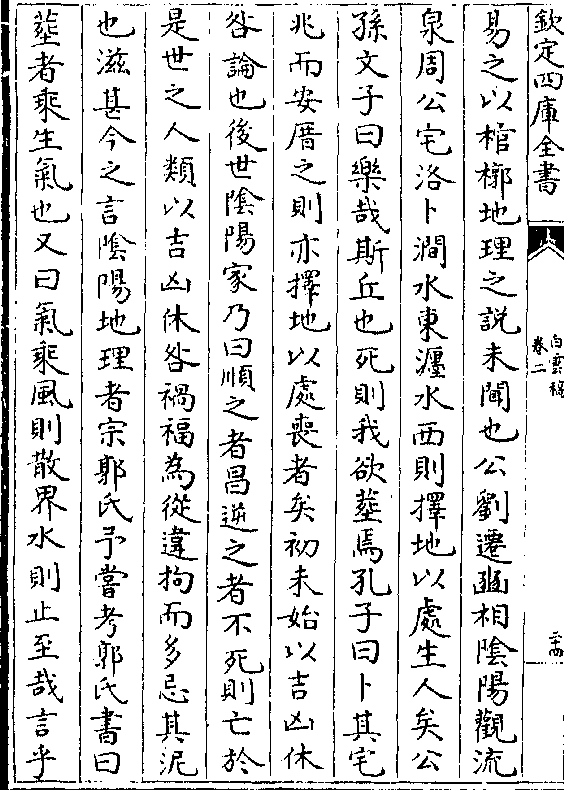 欽定四庫全書
白雲稿
卷二
二十四
易之以棺槨地理之說未聞也公劉遷豳相陰陽觀流
泉周公宅洛卜澗水東瀍水西則擇地以處生人矣公
孫文子曰樂哉斯丘也死則我欲塟焉孔子曰卜其宅
兆而安厝之則亦擇地以處喪者矣初未始以吉凶休
咎論也後世陰陽家乃曰順之者昌逆之者不死則亡於
是世之人類以吉凶休咎禍福為從違拘而多忌其泥
也滋甚今之言陰陽地理者宗郭氏予嘗考郭氏書曰
塟者乘生氣也又曰氣乘風則散界水則止至哉言乎